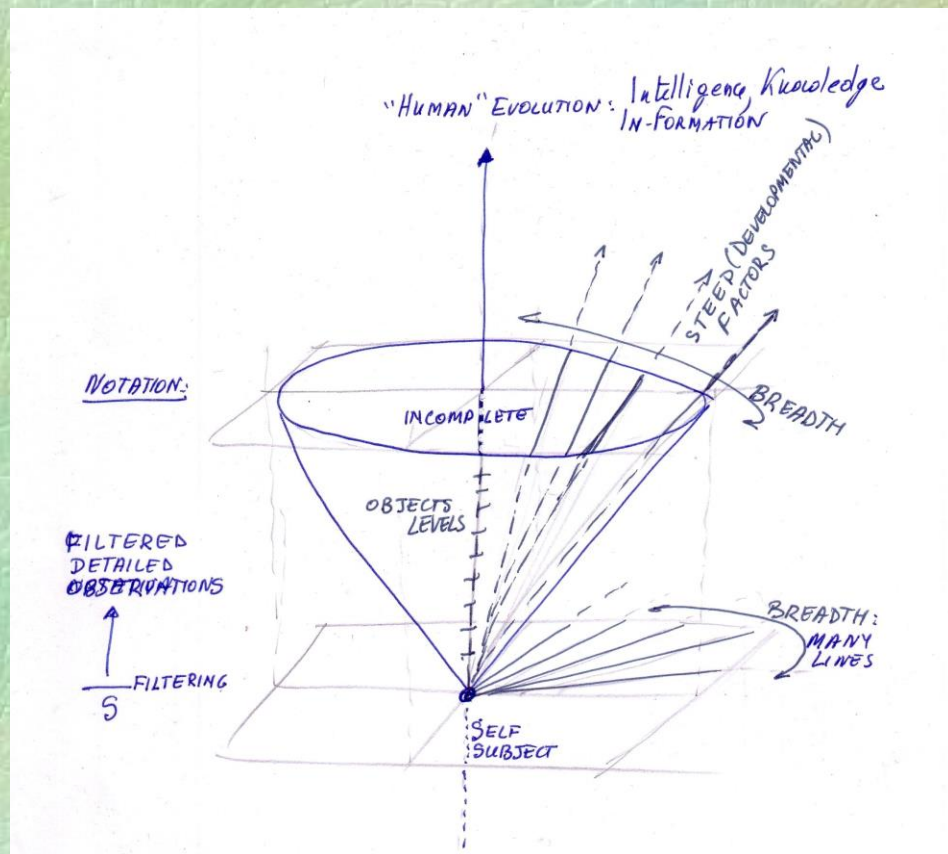 "HUMAN" EVOLUTION: Intelligence, Knowledge
IN-FORMATION
STEEP (DEVELOPMENTAL)
FACTORS
NOTATION:
INCOMPLETE
BREADTH
OBJECTS
LEVELS
FILTERED
DETAILED
OBSERVATIONS
FILTERING
S
BREADTH:
MANY
LINES
SELF
SUBJECT